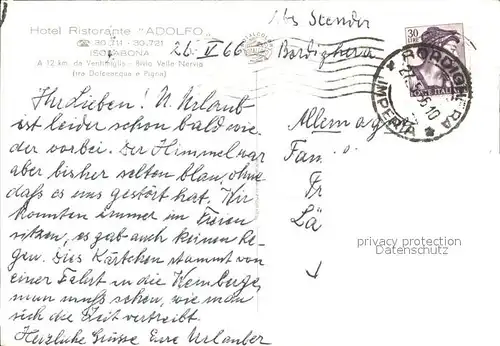 Hotel Ristorante "ADOLFO"
☎ 30.711 - 30.721
ISOLABONA
A 12 km. da Ventimiglia - Bivio Valle Nervia
(tra Dolceacqua e Pigna)
26. V 66
Abs Stender
Bordighera
30
LIRE
POSTE ITALIANE
BORDIGHERA
IMPERIA
Ihr Lieben! U. Urlaub
ist leider schon bald wie-
der vorbei. Der Himmel war
aber bisher selten blau, ohne
daß es uns gestört hat. Wir
konnten immer im Freien
sitzen, es gab auch keinen Re-
gen. Dies Kärtchen stammt von
einer Fahrt in die Weinberge,
man muß sehen, wie man
sich die Zeit vertreibt.
Herzliche Grüsse Eure Urlauber
Allemag
Fam
Fr
Lä
privacy protection
Datenschutz